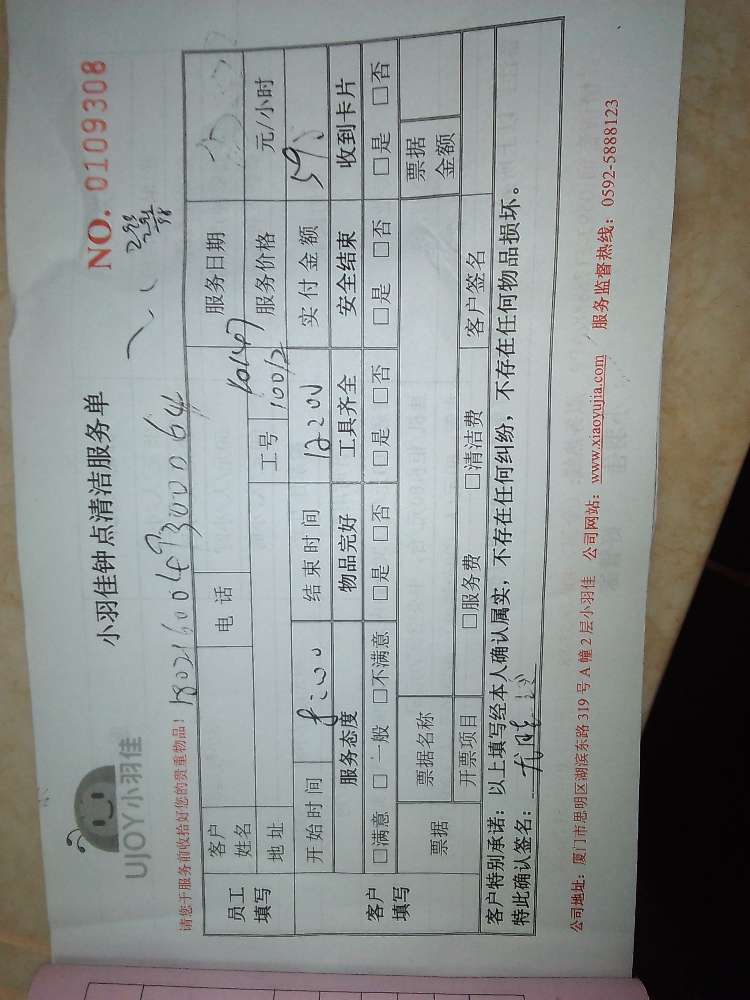 UJOY小羽佳
小羽佳钟点清洁服务单
NO. 0109308
请您于服务前收拾好您的贵重物品!
员工填写 客户姓名 电话 服务日期
地址 工号 服务价格 元/小时
客户填写 开始时间 结束时间 实付金额
服务态度 物品完好 工具齐全 安全结束 收到卡片
□满意 □一般 □不满意 □是 □否 □是 □否 □是 □否 □是 □否
票据 票据名称 票据金额
开票项目 □服务费 □清洁费 客户签名
客户特别承诺:以上填写经本人确认属实,不存在任何纠纷,不存在任何物品损坏。
特此确认签名:
公司地址:厦门市思明区湖滨东路 319 号 A 幢 2 层小羽佳 公司网站:www.xiaoyujia.com 服务监督热线:0592-5888123